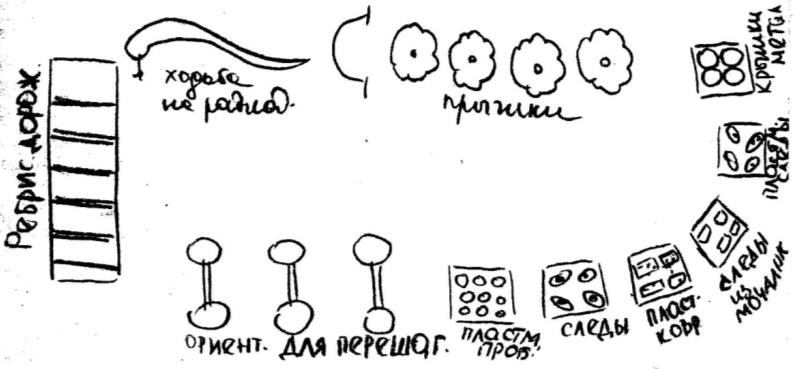 Ребрис. дорож.
ходьба
на
прыжки
крышки
метал
пластм.
следы
следы
из
мочалик
пласт.
ковр
следы
пластм.
проб.
ориент. для перешаг.